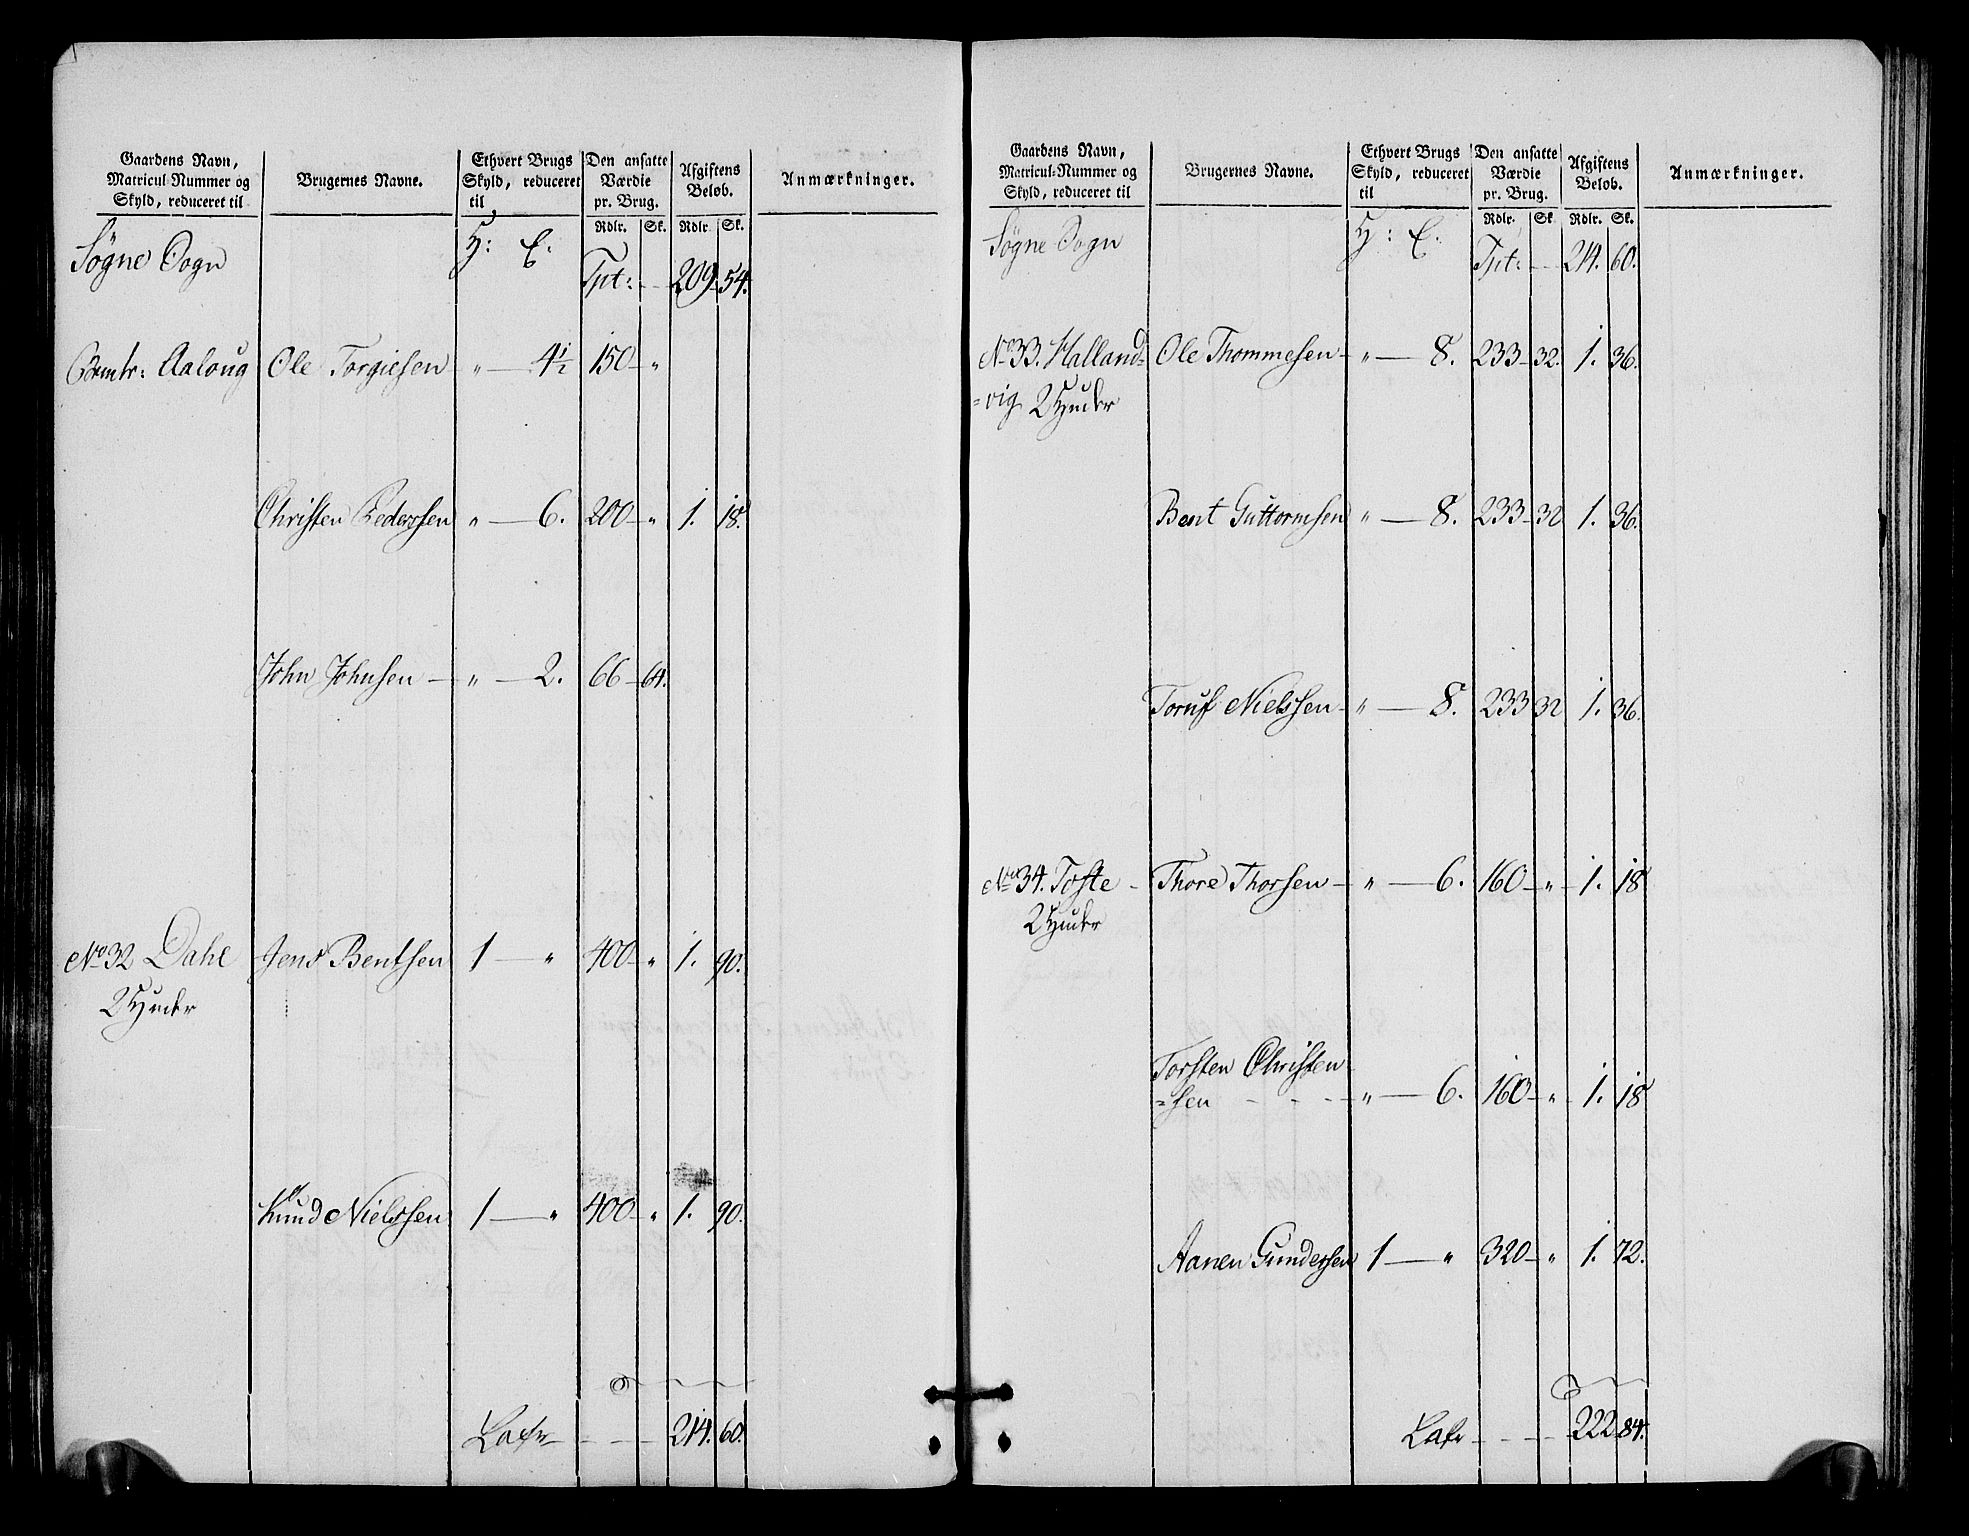 Gaardens Navn, Matricul-Nummer og Skyld, reduceret til | Brugernes Navne. | Ethvert Brugs Skyld, reduceret til | Den ansatte Værdie pr. Brug. | Afgiftens Beløb. | Anmærkninger.
Rdlr. Sk. Rdlr. Sk.
Søgne Sogn H: E:
Tpt: - - 209. 54.
Aaloug Ole Torgiesen „ — 4½ 150 — „
Christen Pedersen „ — 6. 200 — „ 1. 18.
John Johnsen — „ — 2. 66 — 64.
No 32 Dahl Jens Bentsen 1 — „ 400 — „ 1. 90.
2 Huder
Knud Nielssen 1 — „ 400 — „ 1. 90.
Lat - - - 214. 60.
Gaardens Navn, Matricul-Nummer og Skyld, reduceret til | Brugernes Navne. | Ethvert Brugs Skyld, reduceret til | Den ansatte Værdie pr. Brug. | Afgiftens Beløb. | Anmærkninger.
Rdlr. Sk. Rdlr. Sk.
Søgne Sogn H: E:
Tpt: - - 214. 60.
No 33. Halland= Ole Thommesen — „ — 8. 233 — 32. 1. 36.
=vig 2 Huder
Bent Guttormsen „ — 8. 233 — 32 1. 36.
Toruf Nielssen — „ — 8. 233 32 1. 36.
No 34. Tofte - Thore Thorsen — „ — 6. 160 — „ 1. 18
2 Huder
Torsten Christen
=sen - - - „ — 6. 160 — „ 1. 18
Aanen Gundersen 1 — „ 320 — „ 1. 72.
Lat - - - 222 84.